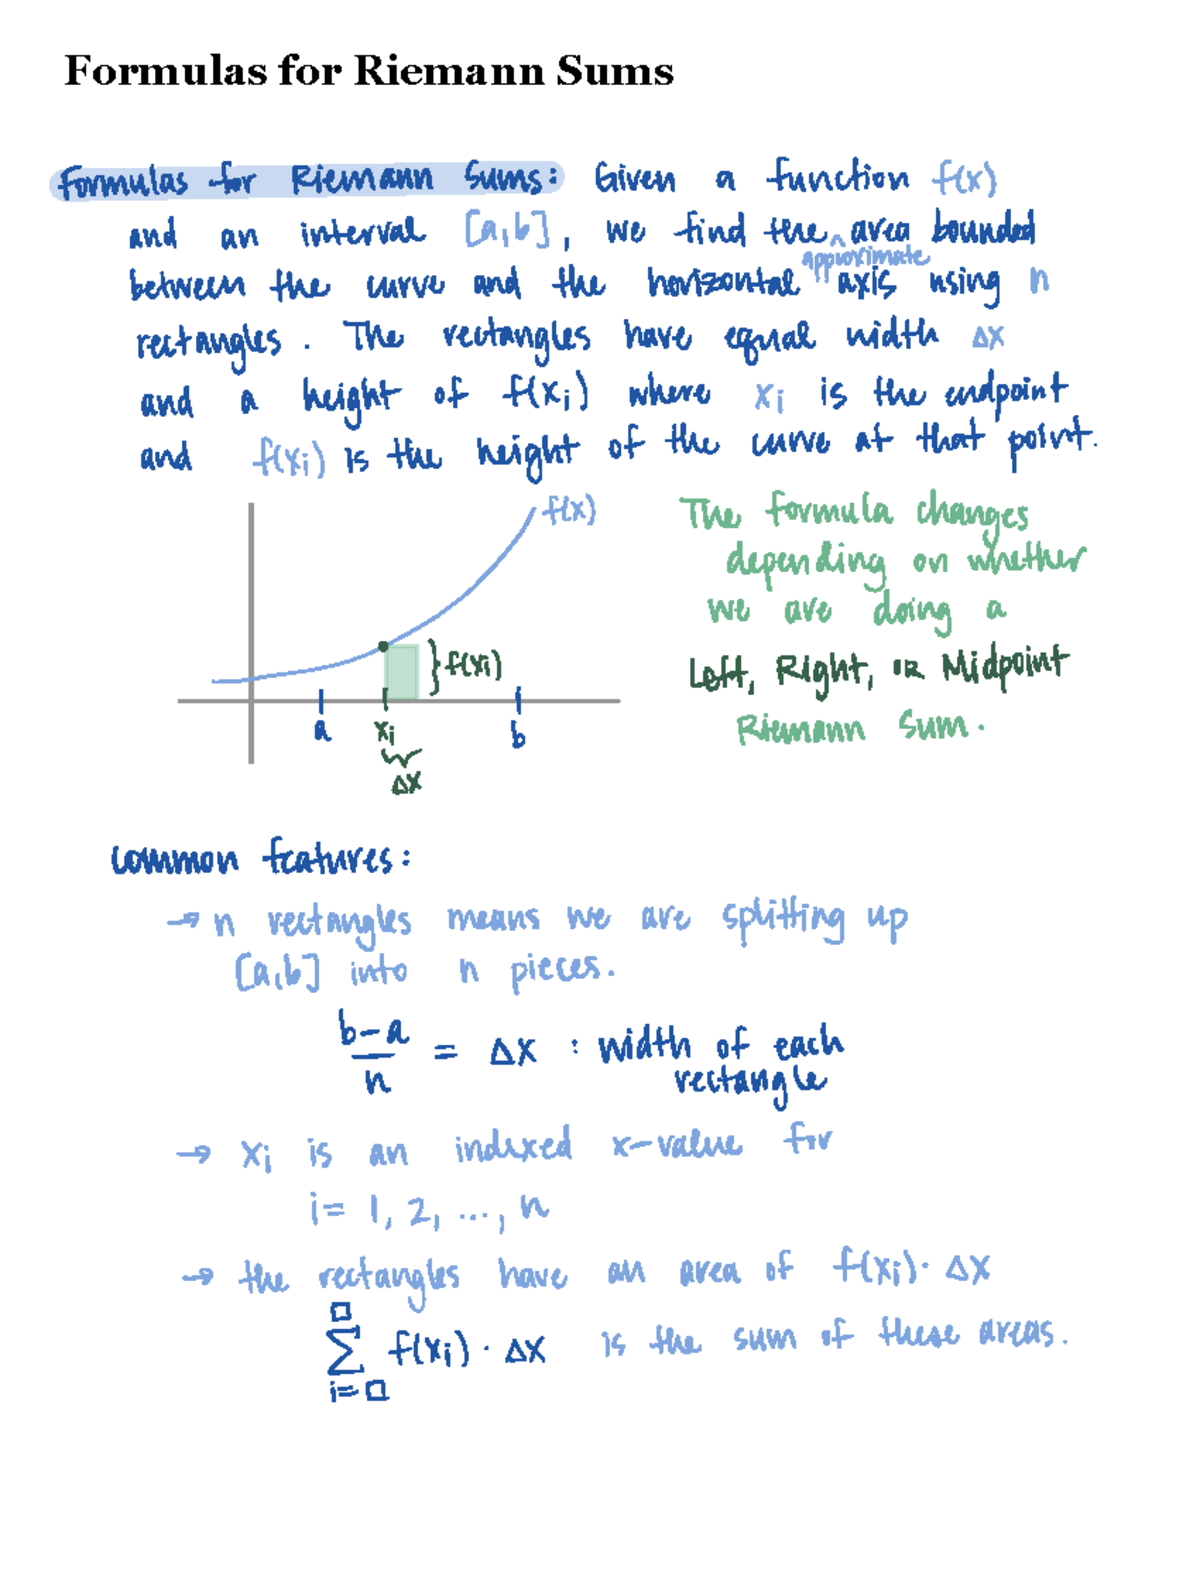 Formulas for Riemann Sums
Formulas for Riemann Sums: Given a function f(x)
and an interval [a,b], we find the ^ area bounded
approximate
between the curve and the horizontal axis using n
rectangles. The rectangles have equal width Δx
and a height of f(xᵢ) where xᵢ is the endpoint
and f(xᵢ) is the height of the curve at that point.
f(x)
}f(xᵢ)
a xᵢ b
Δx
The formula changes
depending on whether
we are doing a
Left, Right, or Midpoint
Riemann Sum.
Common features:
→ n rectangles means we are splitting up
[a,b] into n pieces.
b-a
n
= Δx : width of each
rectangle
→ xᵢ is an indexed x-value for
i= 1, 2, ..., n
→ the rectangles have an area of f(xᵢ)· Δx
□
∑ f(xᵢ) · Δx is the sum of these areas.
i=□